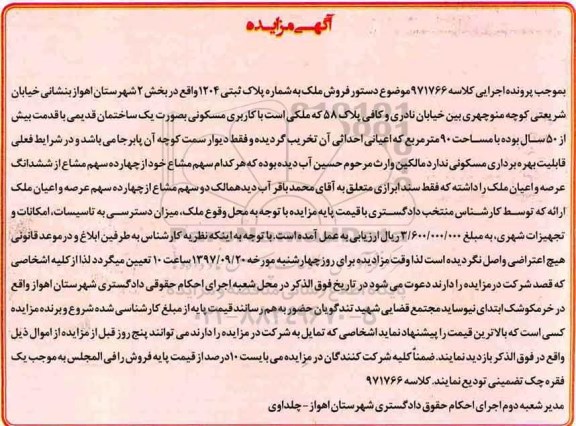 آگهی مزایده
بموجب پرونده اجرایی کلاسه ۹۷۱۷۶۶ موضوع دستور فروش ملک به شماره پلاک ثبتی ۱۲۰۴ واقع در بخش ۲ شهرستان اهواز بنشانی خیابان
شریعتی کوچه منوچهری بین خیابان نادری و کافی پلاک ۵۸ که ملکی است با کاربری مسکونی بصورت یک ساختمان قدیمی با قدمت بیش
از ۵۰ سال بوده با مساحت ۹۰ مترمربع که اعیانی احداثی آن تخریب گردیده و فقط دیوار سمت کوچه آن پابرجا می باشد و در شرایط فعلی
قابلیت بهره برداری مسکونی ندارد مالکین وارث مرحوم حسین آب دیده بوده که هر کدام سهم مشاع خود از چهارده سهم مشاع از ششدانگ
عرصه و اعیان ملک را داشته که فقط سند ابرازی متعلق به آقای محمد باقر آب دیده مالک دو سهم مشاع از چهارده سهم عرصه و اعیان ملک
ارائه که توسط کارشناس منتخب دادگستری با قیمت پایه مزایده با توجه به محل وقوع ملک، میزان دسترسی به تاسیسات، امکانات و
تجهیزات شهری، به مبلغ ۳/۶۰۰/۰۰۰/۰۰۰ ریال ارزیابی به عمل آمده است. با توجه به اینکه نظریه کارشناس به طرفین ابلاغ و در موعد قانونی
هیچ اعتراضی واصل نگردیده است لذا وقت مزادیده برای روز چهارشنبه مورخه ۱۳۹۷/۰۹/۲۰ ساعت ۱۰ تعیین میگردد لذا از کلیه اشخاصی
که قصد شرکت در مزایده را دارند دعوت می شود در تاریخ فوق الذکر در محل شعبه اجرای احکام حقوقی دادگستری شهرستان اهواز واقع
در خرمکوشک ابتدای نیوساید مجتمع قضایی شهید تندگویان حضور به هم رسانند قیمت پایه از مبلغ کارشناسی شده شروع و برنده مزایده
کسی است که بالاترین قیمت را پیشنهاد نماید اشخاصی که تمایل به شرکت در مزایده را دارند می توانند پنج روز قبل از مزایده از اموال ذیل
واقع در فوق الذکر بازدید نمایند. ضمناً کلیه شرکت کنندگان در مزایده می بایست ۱۰ درصد از قیمت پایه فروش را فی المجلس به موجب یک
فقره چک تضمینی تودیع نمایند. کلاسه ۹۷۱۷۶۶
مدیر شعبه دوم اجرای احکام حقوق دادگستری شهرستان اهواز - چلداوی